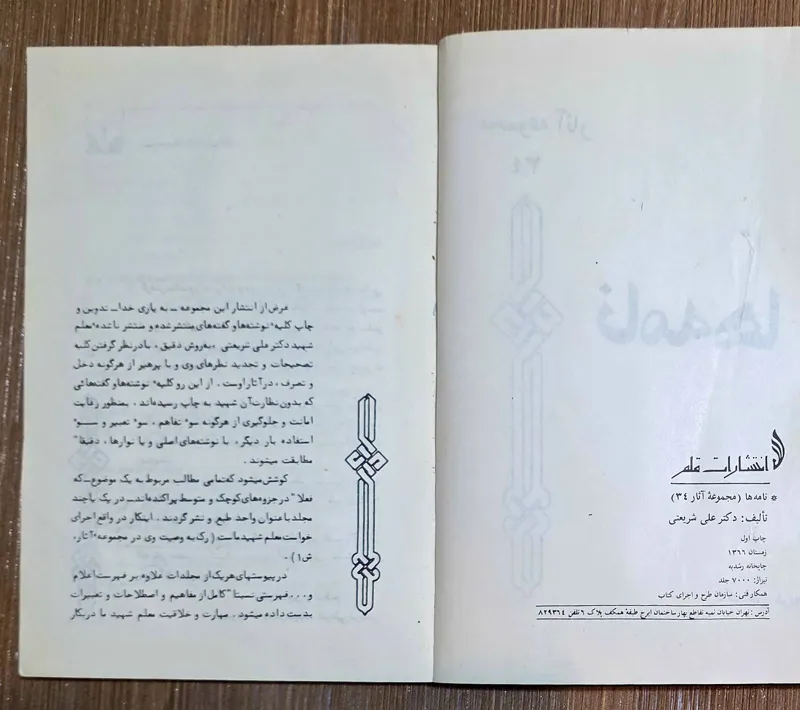 انتشارات قلم
* نامه‌ها (مجموعهٔ آثار ۳۴)
تألیف: دکتر علی شریعتی
چاپ اول
زمستان ۱۳۶۶
چاپخانه رشدیه
تیراژ: ۷۰۰۰ جلد
همکار فنی: سازمان طرح و اجرای کتاب
آدرس: تهران خیابان ثمیه تقاطع بهار ساختمان ایرج طبقهٔ همکف پلاک ۶ تلفن ۸۲۹۳۶۴
غرض از انتشار این مجموعه ــ به یاری خدا ــ تدوین و
چاپ کلیهٔ نوشته‌ها و گفته‌های منتشر شده و منتشر ناشدهٔ معلم
شهید دکتر علی شریعتی، به‌روش دقیق، با در نظر گرفتن کلیه
تصحیحات و تجدید نظرهای وی و با پرهیز از هرگونه دخل
و تصرف، در آثار اوست. از این رو کلیهٔ نوشته‌ها و گفته‌هائی
که بدون نظارت آن شهید به چاپ رسیده‌اند، بمنظور رعایت
امانت و جلوگیری از هرگونه سوء تفاهم، سوء تعبیر و ســوء
استفاده بار دیگر، با نوشته‌های اصلی و یا نوارها، دقیقا"
مطابقت میشوند.
کوشش میشود که تمامی مطالب مربوط به یک موضوع ــ که
فعلا" در جزوه‌های کوچک و متوسط پراکنده‌اند ــ در یک یا چند
مجلد با عنوان واحد طبع و نشر گردند. اینکار در واقع اجرای
خواست معلم شهید ماست (رک به وصیت وی در مجموعه آثار،
ش۱).
در پیوستهای هر یک از مجلدات علاوه بر فهرست اعلام
و... فهرستی نسبتا" کامل از مفاهیم و اصطلاحات و تعبیرات
بدست داده میشود. مهارت و خلاقیت معلم شهید ما در بکار